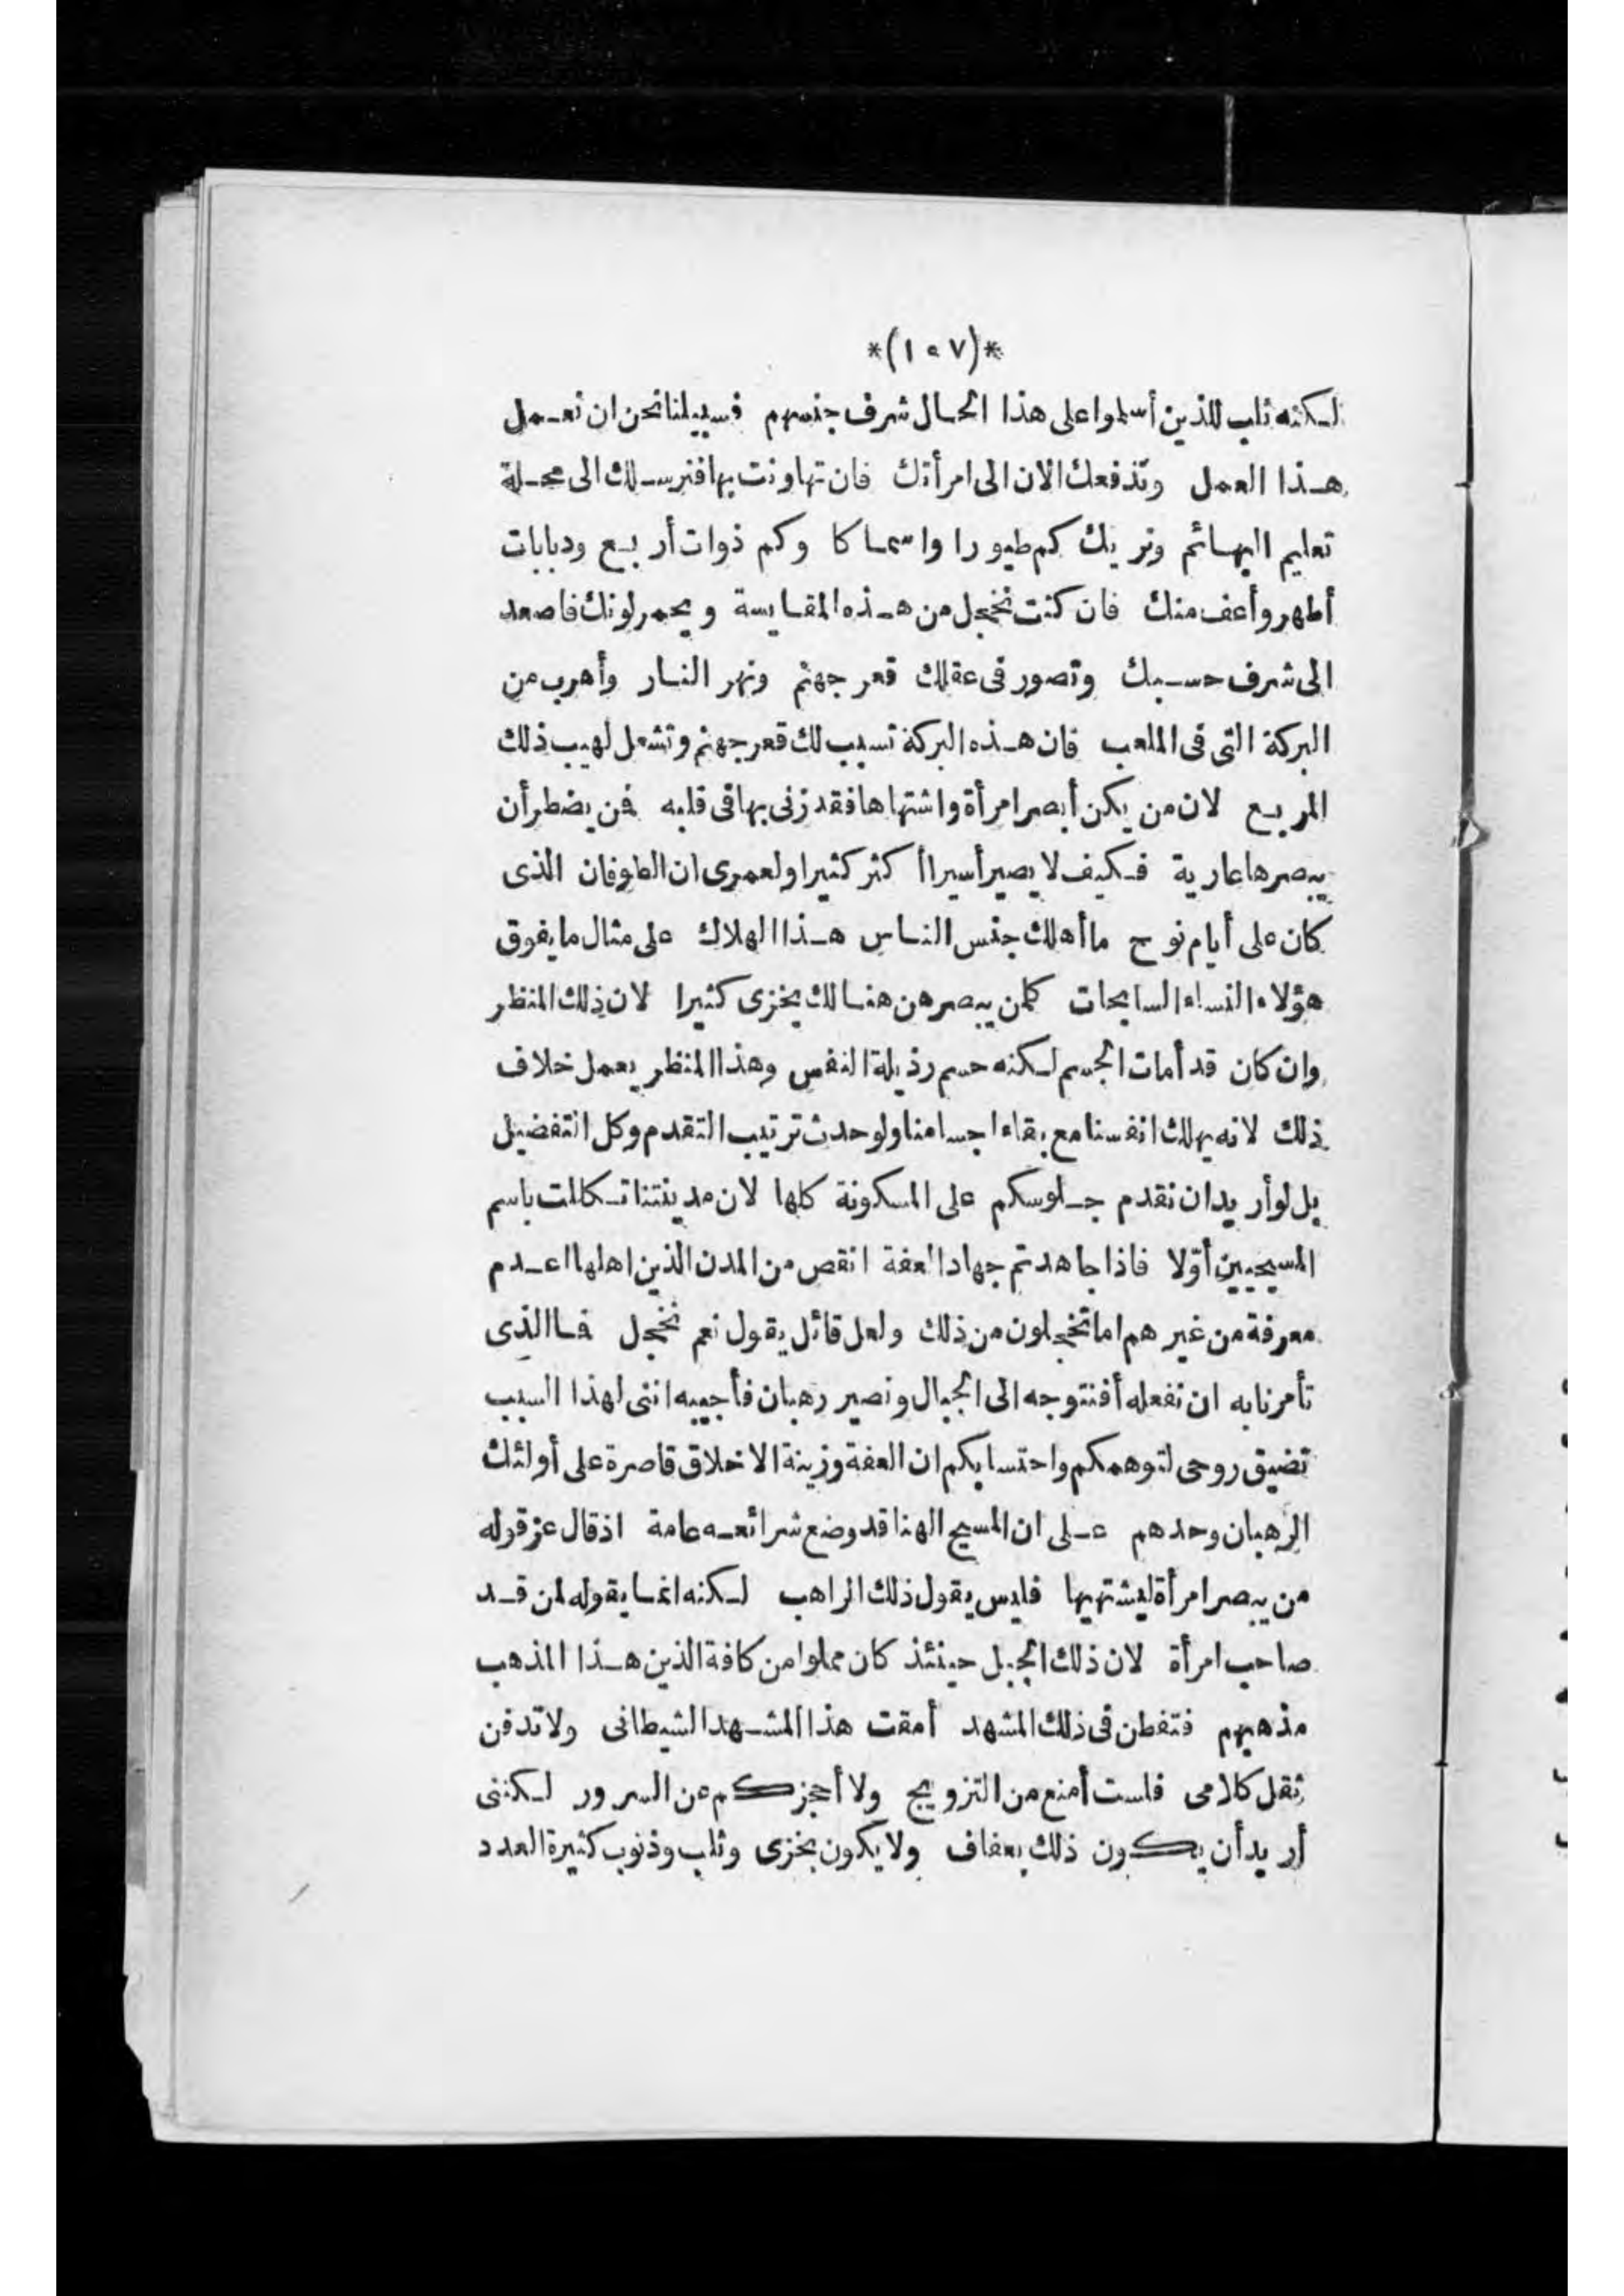 *(١٠٧)*
لكنه ثلب للذين أسلموا على هذا الحال شرف جنسهم فسبيلنا نحن ان نعمل
هذا العمل وندفعك الان الى امرأتك فان تهاونت بها فنرسلك الى محلة
تعليم البهائم ونريك كم طيورا واسماكا وكم ذوات أربع ودبابات
أطهر وأعف منك فان كنت تخجل من هذه المقايسة ويحمر لونك فاصعد
الى شرف حسبك وتصور فى عقلك قعر جهنم ونهر النار وأهرب من
البركة التى فى الملعب فان هذه البركة تسبب لك قعر جهنم وتشعل لهيب ذلك
المريع لان من يكن أبصر امرأة واشتهاها فقد زنى بها فى قلبه فمن يضطر أن
يبصرها عارية فكيف لا يصير أسيرا أكثر كثيرا ولعمرى ان الطوفان الذى
كان على أيام نوح ما أهلك جنس الناس هذا الهلاك على مثال ما يفوق
هؤلاء النساء السابحات كلمن يبصرهن هنالك بخزى كثيرا لان ذلك المنظر
وان كان قد أمات الجسم لكنه حسم رذيلة النفس وهذا المنظر يعمل خلاف
ذلك لانه يهلك انفسنا مع بقاء اجسامنا ولو حدث ترتيب التقدم وكل التفضيل
بل لو أريد ان نقدم جلوسكم على المسكونة كلها لان مدينتنا تكللت باسم
المسيحيين أوّلا فاذا جاهدتم جهاد العفة انقص من المدن الذين اهلها اعدم
معرفة من غيرهم اما تخجلون من ذلك ولعل قائل يقول نعم نخجل فما الذى
تأمرنا به ان نفعله أفنتوجه الى الجبال ونصير رهبان فأجيبه اننى لهذا السبب
تضيق روحى لتوهمكم واحتسابكم ان العفة وزينة الاخلاق قاصرة على أولئك
الرهبان وحدهم على ان المسيح الهنا قد وضع شرائعه عامة اذ قال عز قوله
من يبصر امرأة ليشتهيها فليس يقول ذلك الراهب لكنه انما يقوله لمن قد
صاحب امرأة لان ذلك الجبل حينئذ كان مملوا من كافة الذين هذا المذهب
مذهبهم فتفطن فى ذلك المشهد أمقت هذا المشهد الشيطانى ولا تدفن
ثقل كلامى فلست أمنع من التزويج ولا أحجزكم عن السرور لكننى
أريد أن يكون ذلك بعفاف ولا يكون بخزى وثلب وذنوب كثيرة العدد